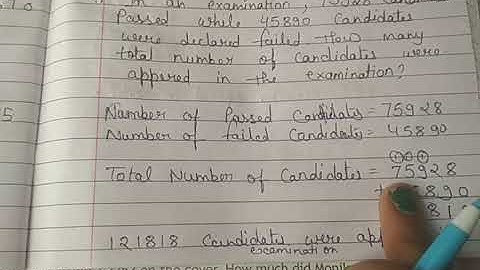 an examination, 75928
Passed while 45890 Candidates
were declared failed How many
total number of candidates were
appered in the examination?
Number of Passed Candidates = 75928
Number of failed Candidates = 45890
Total Number of Candidates = 75928
121818 Candidates were
examination
on the cover. How much did